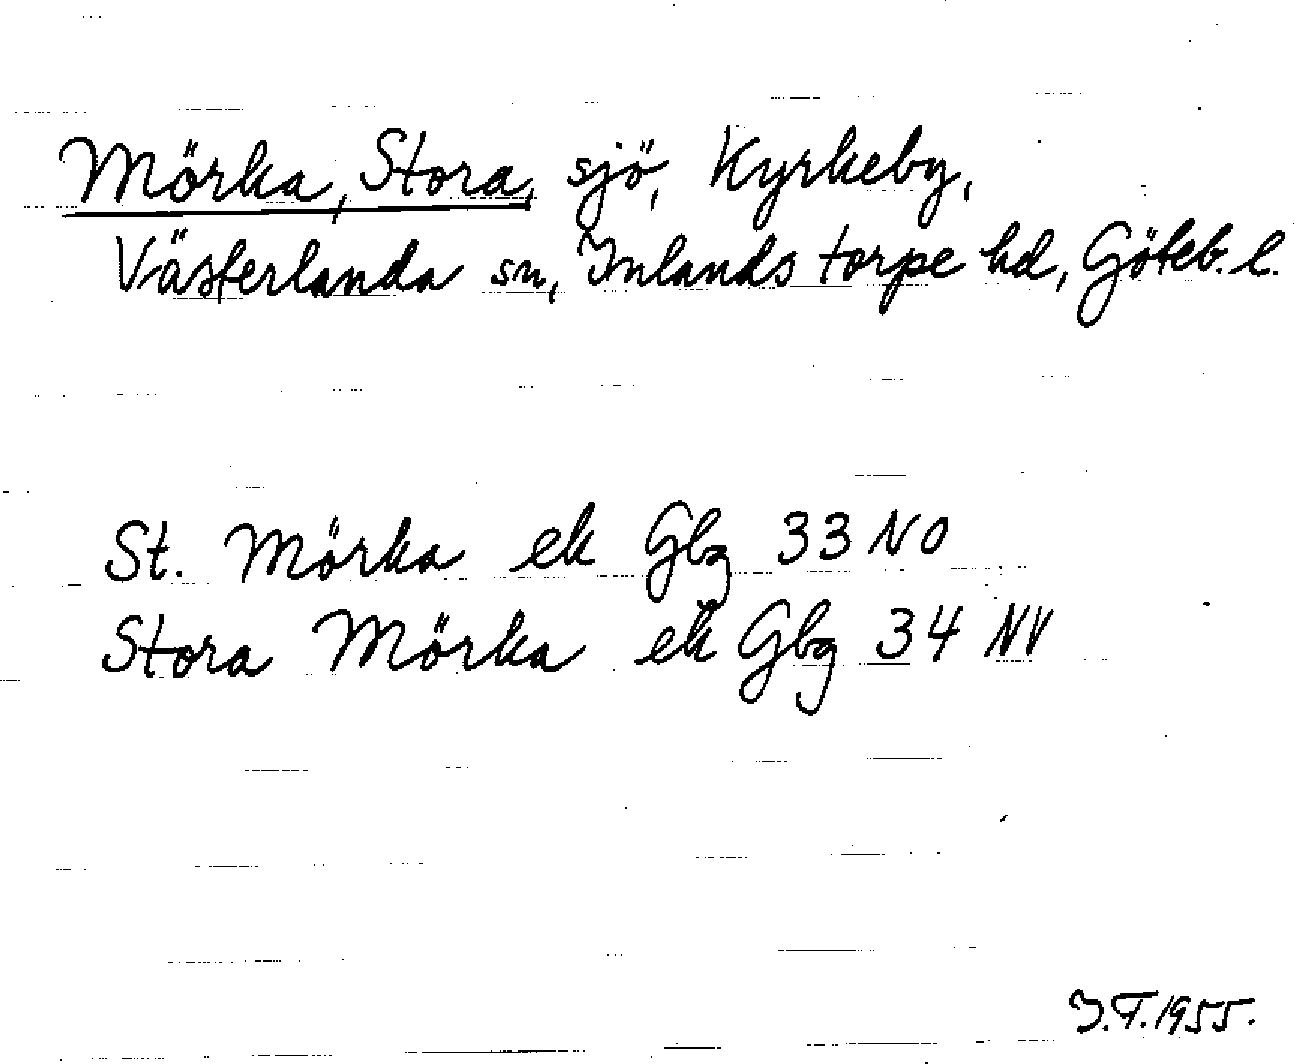 Mörka, Stora, sjö, Kyrkeby,
Västerlanda sn, Inlands torpe hd, Göteb. l.
St. Mörka ek Gbg 33 NO
Stora Mörka ek Gbg 34 NV
I.T. 1955.